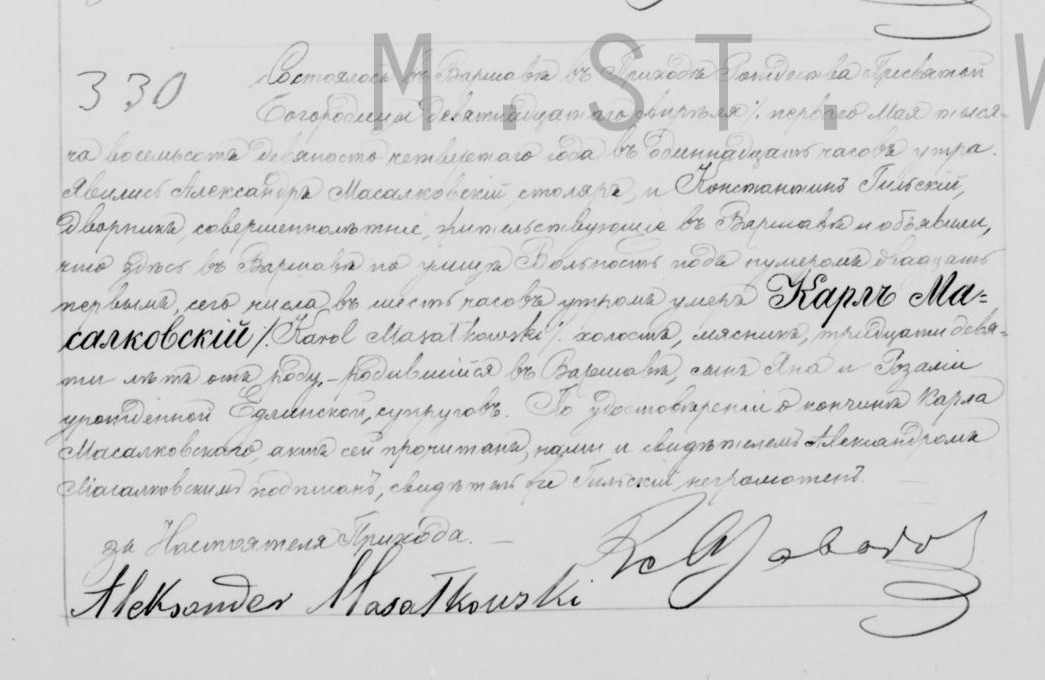 M. S. T.
330
Состоялось въ Варшавѣ въ Приходѣ Рождества Пресвятой
Богородицы девятнадцатаго Апрѣля /: перваго Мая тыся-
ча восемьсотъ девяносто четвертаго года въ одиннадцать часовъ утра.
Явились Александръ Масалковскій, столяръ, и Константинъ Гильскій,
дворникъ, совершеннолѣтніе, жительствующіе въ Варшавѣ и объявили,
что здѣсь въ Варшавѣ по улицѣ Вольность подъ нумеромъ двадцать
первымъ, сего числа въ шесть часовъ утромъ умеръ Карлъ Ма=
салковскій /: Karol Masałkowski :/ холостъ, мясникъ, тридцати девя-
ти лѣтъ отъ роду, - родившійся въ Варшавѣ, сынъ Яна и Розаліи
урожденной Едлинской, супруговъ. По удостовѣреніи о кончинѣ Карла
Масалковскаго, актъ сей прочитанъ, нами и свидѣтелемъ Александромъ
Масалковскимъ подписанъ, свидѣтель же Гильскій неграмотенъ.
за Настоятеля Прихода.
Aleksander Masałkowski